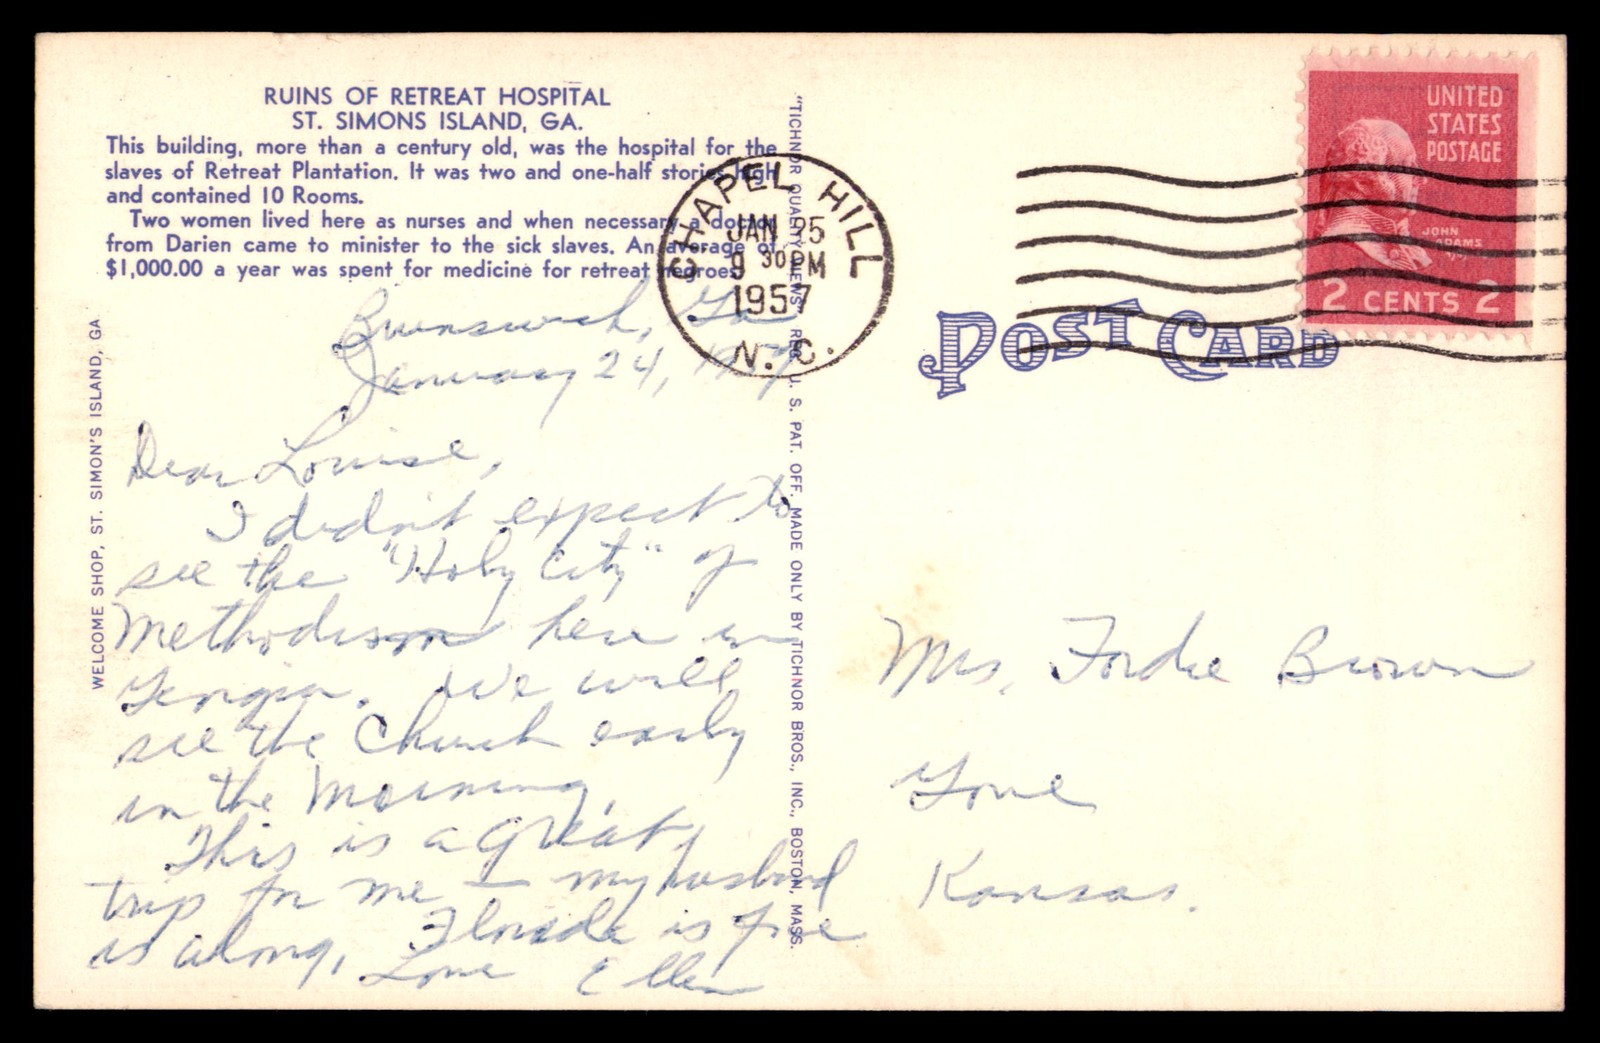 RUINS OF RETREAT HOSPITAL
ST. SIMONS ISLAND, GA.
This building, more than a century old, was the hospital for the
slaves of Retreat Plantation. It was two and one-half stories high
and contained 10 Rooms.
Two women lived here as nurses and when necessary a doctor
from Darien came to minister to the sick slaves. An average of
$1,000.00 a year was spent for medicine for retreat negroes.
Brunswick, Ga
January 24, 1957
Dear Louise,
I didn't expect to
see the "Holy City" of
Methodism here in
Georgia. We will
see the Church early
in the morning.
This is a great
trip for me — my husband
is along. Florida is fine
Love Ellen
WELCOME SHOP, ST. SIMON'S ISLAND, GA
"TICHNOR QUALITY VIEWS," REG. U. S. PAT. OFF. MADE ONLY BY TICHNOR BROS., INC., BOSTON, MASS.
CHAPEL HILL
JAN 25
9 30 PM
1957
N. C.
UNITED
STATES
POSTAGE
JOHN
ADAMS
2 CENTS 2
POST CARD
Mrs. Fordie Brown
Kansas.